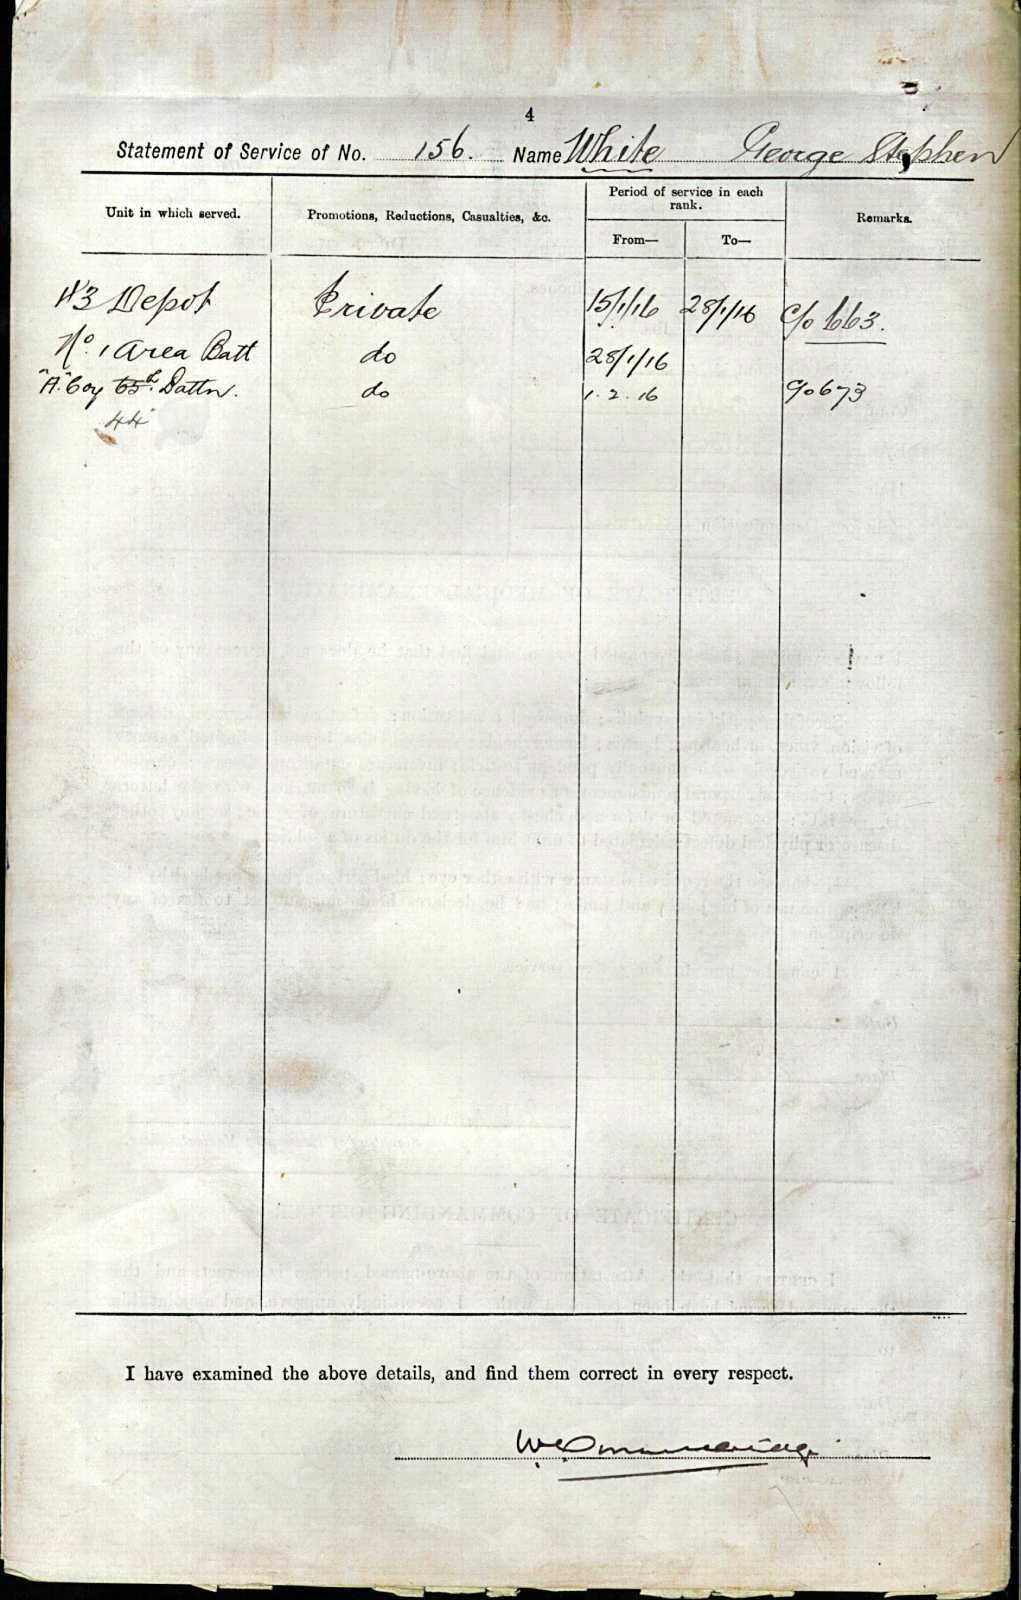 4
Statement of Service of No. 156. Name White George Stephen
Unit in which served. Promotions, Reductions, Casualties, &c. Period of service in each rank. From— To— Remarks.
Depot Private 15/1/16 28/1/16 C/o 663.
No. 1 Area Batt do 28/1/16
"A" Coy 65th Battn. do 1.2.16 C/o 673
44
I have examined the above details, and find them correct in every respect.